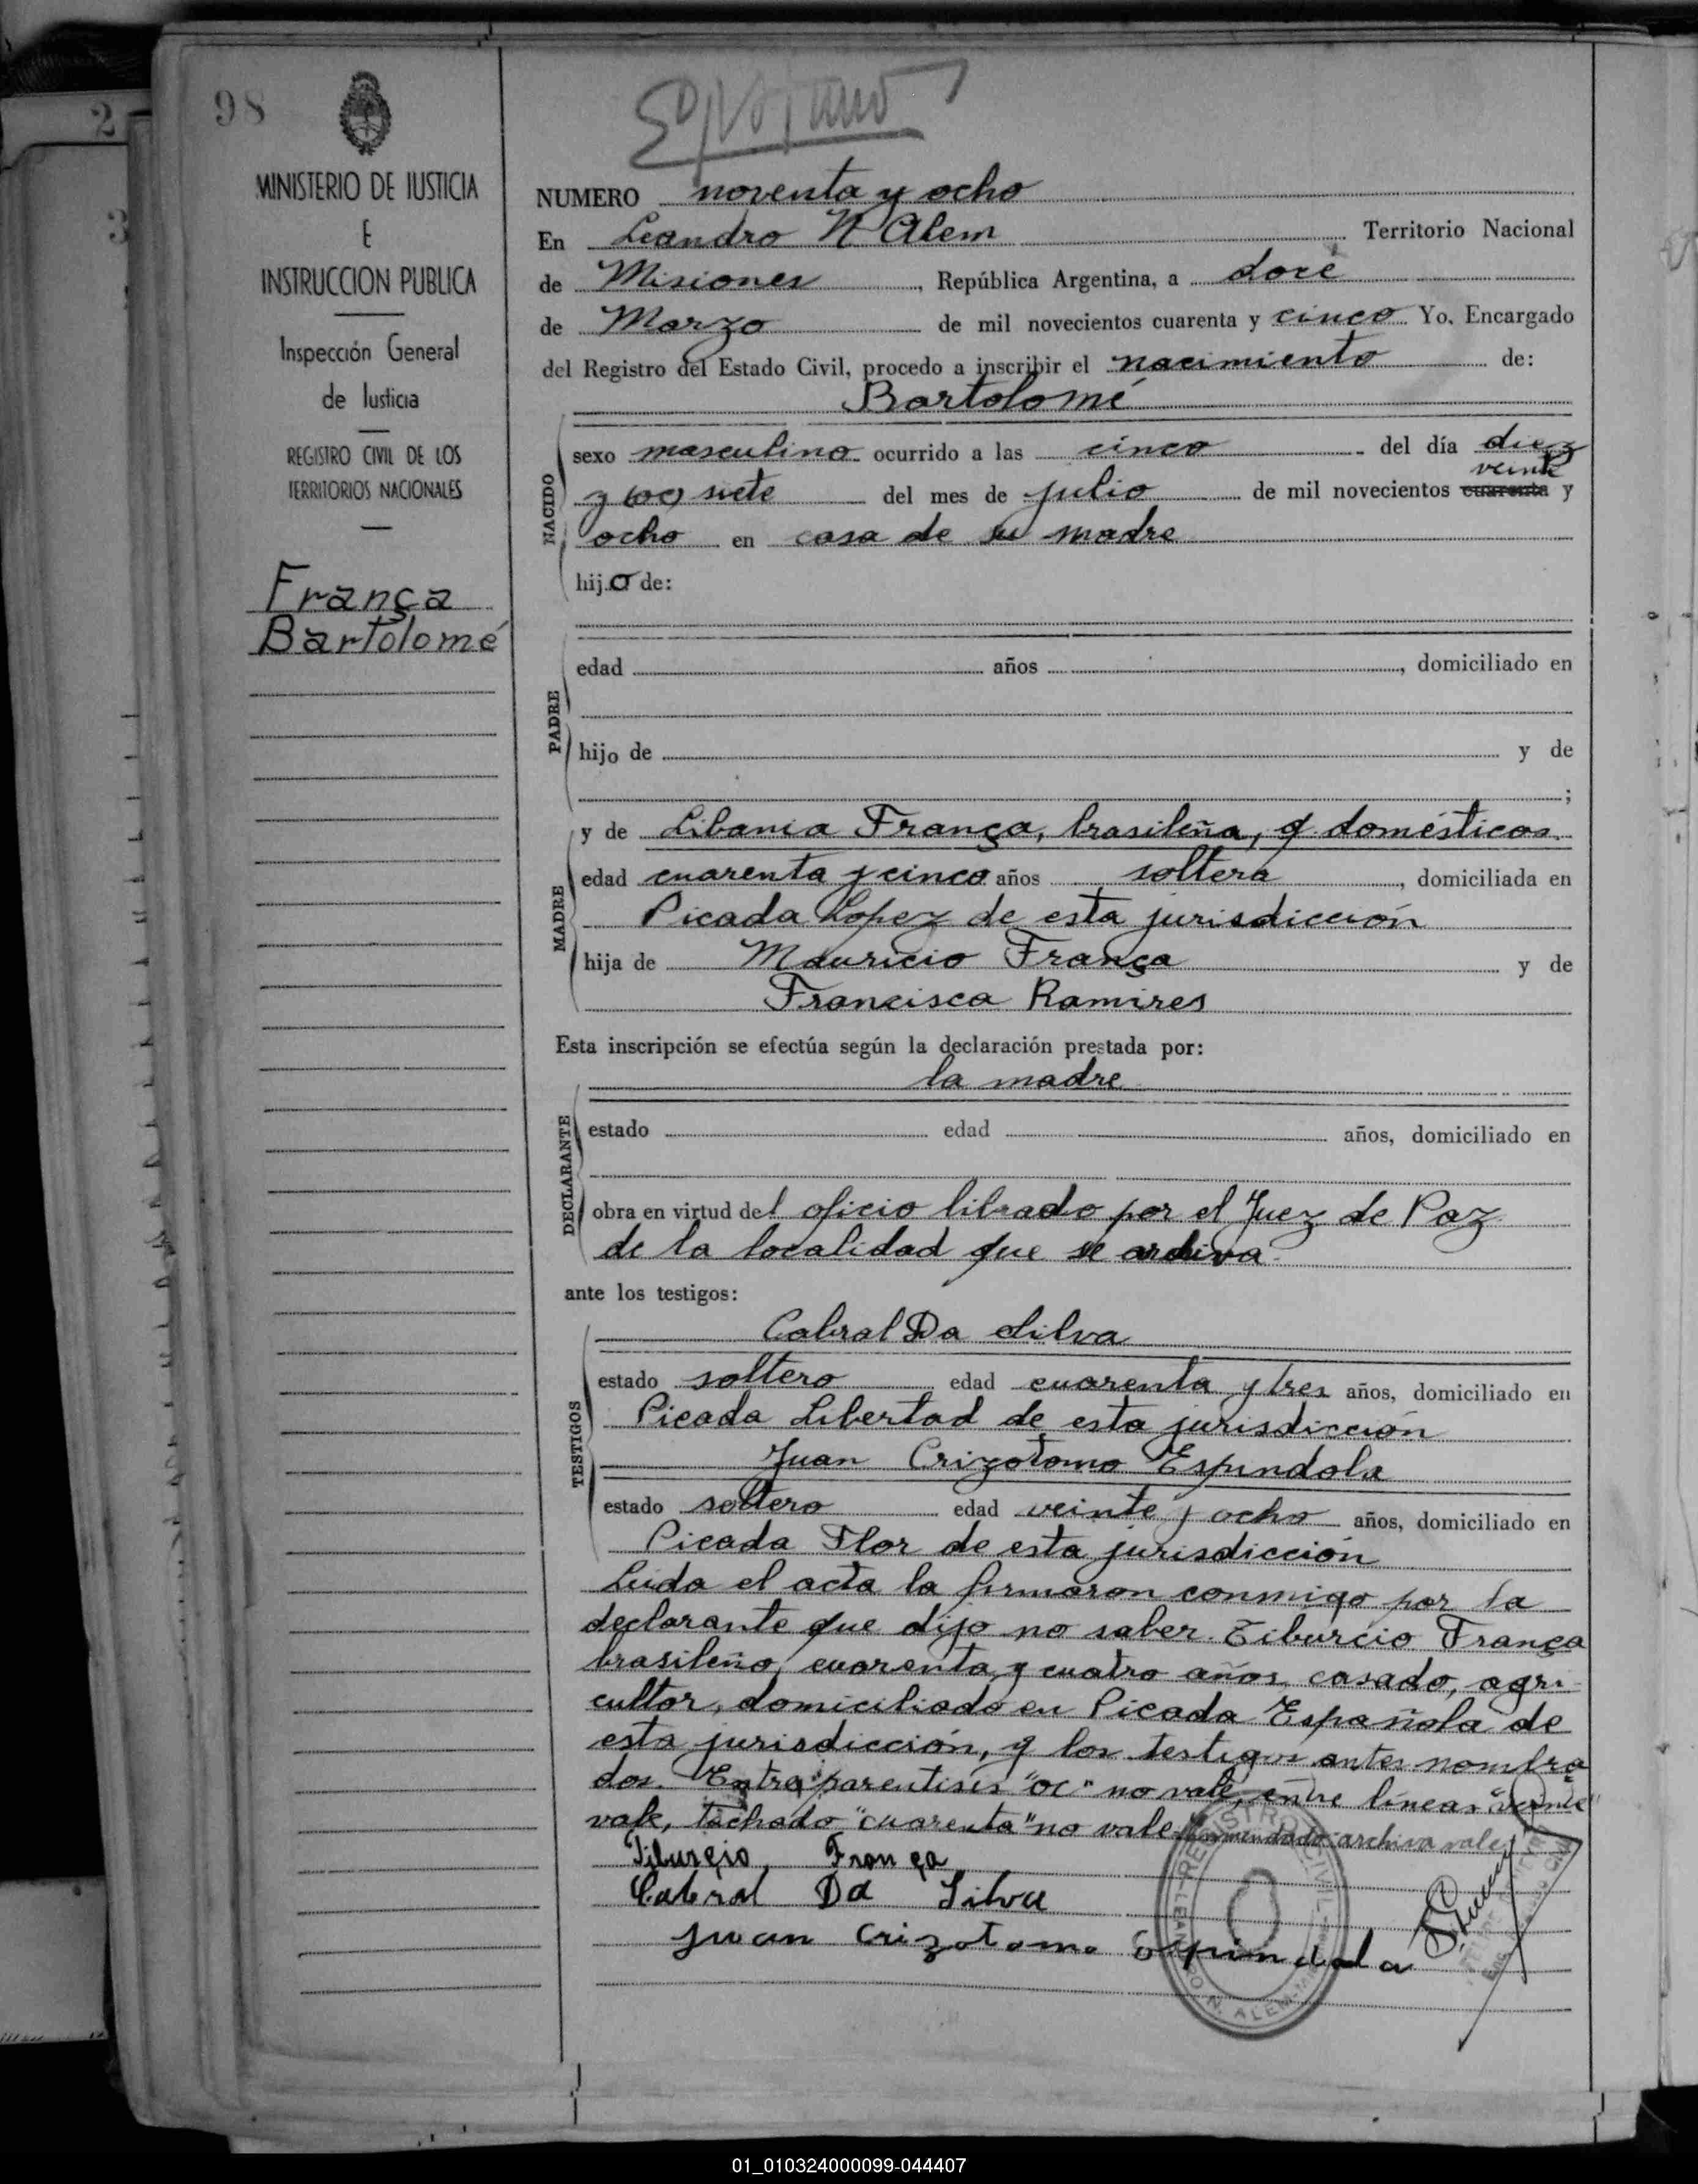 98
2
3
MINISTERIO DE JUSTICIA
E
INSTRUCCION PUBLICA
Inspección General
de Justicia
REGISTRO CIVIL DE LOS
TERRITORIOS NACIONALES
França
Bartolomé
NUMERO noventa y ocho
En Leandro N Alem Territorio Nacional
de Misiones, República Argentina, a doce
de Marzo de mil novecientos cuarenta y cinco Yo, Encargado
del Registro del Estado Civil, procedo a inscribir el nacimiento de:
Bartolomé
NACIDO
sexo masculino ocurrido a las cinco del día diez
veinte
y (oc) siete del mes de julio de mil novecientos cuarenta y
ocho en casa de su madre
hijo de:
PADRE
edad años , domiciliado en
hijo de y de
;
MADRE
y de Libania França, brasileña, q. domésticos.
edad cuarenta y cinco años soltera, domiciliada en
Picada Lopez de esta jurisdicción
hija de Mauricio França y de
Francisca Ramires
Esta inscripción se efectúa según la declaración prestada por:
la madre
DECLARANTE
estado edad años, domiciliado en
obra en virtud del oficio librado por el Juez de Paz
de la localidad que se archiva
ante los testigos:
TESTIGOS
Cabral Da Silva
estado soltero edad cuarenta y tres años, domiciliado en
Picada Libertad de esta jurisdicción
Juan Crizotomo Espindola
estado soltero edad veinte y ocho años, domiciliado en
Picada Flor de esta jurisdicción
Leída el acta la firmaron conmigo por la
declarante que dijo no saber. Tiburcio França
brasileño, cuarenta y cuatro años, casado, agri-
cultor, domiciliado en Picada Española de
esta jurisdicción, y los testigos antes nombra
dos. Entre parentisis "oc" no vale, entre líneas "veinte"
vale, tachado "cuarenta" no vale. enmendado: archiva vale
Tiburçio França
Cabral Da Silva
Juan Crizotomo Espindola
REGISTRO CIVIL
LEANDRO N. ALEM
01_010324000099-044407